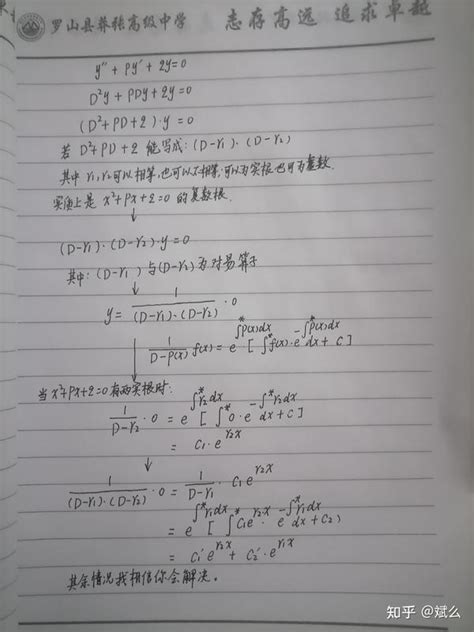 罗山县莽张高级中学 志存高远 追求卓越
y″ + py′ + 2y = 0
D²y + PDy + 2y = 0
(D² + PD + 2)·y = 0
若 D²+PD+2 能写成: (D-r₁)·(D-r₂)
其中 r₁,r₂可以相等,也可以不相等,可以为实根也可为复数.
实质上是 x²+px+2=0 的复数根.
↓
(D-r₁)·(D-r₂)·y=0
其中: (D-r₁) 与(D-r₂)为对易算子
↓
y = 1/((D-r₁)·(D-r₂)) · 0
↓ 1/(D-p(x)) f(x) = e^(∫*p(x)dx) [∫* f(x)·e^(-∫*p(x)dx) dx + C]
当 x²+px+2=0有两实根时:
1/(D-r₂) · 0 = e^(∫*r₂dx) [∫*0·e^(-∫*r₂dx) dx + C]
= C₁·e^(r₂x)
↓
1/((D-r₁)·(D-r₂)) · 0 = 1/(D-r₁) · C₁e^(r₂x)
= e^(∫*r₁dx) [∫*C₁e^(r₂x)·e^(-∫*r₁dx) dx + C₂)
= C₁′e^(r₂x) + C₂′·e^(r₁x)
其余情况我相信你会解决。
知乎 @斌么